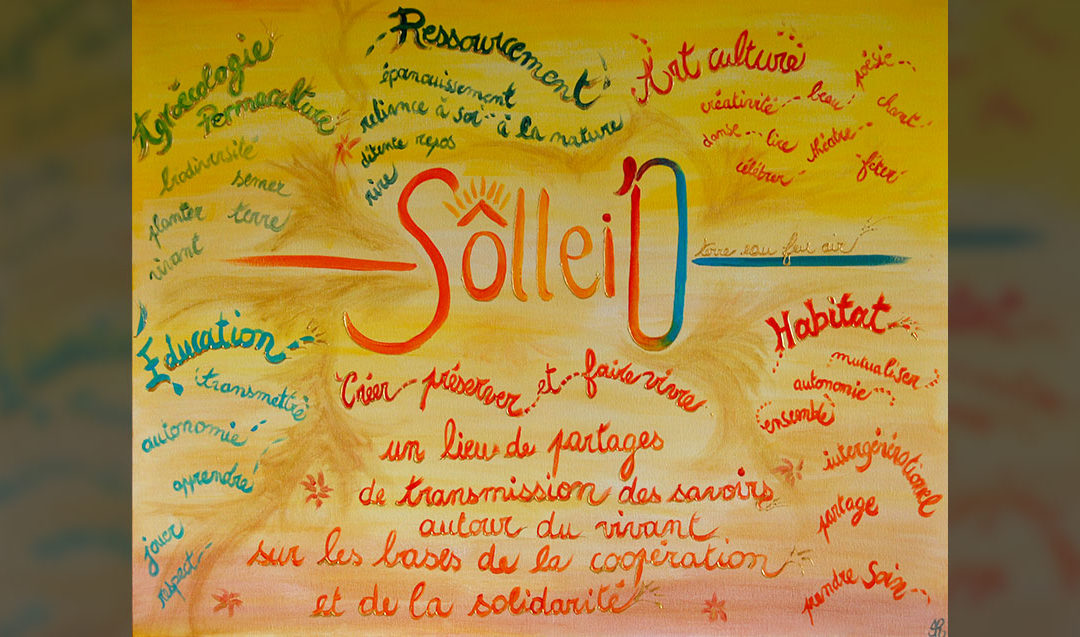 Agroécologie
Permaculture
biodiversité
semer
planter
terre
vivant
Ressourcement
épanouissement
reliance à soi - à la nature
détente repos
rire
Art culture
créativité
beau
poésie
chant
danse
lire
théâtre
célébrer
fêter
Sôllei'O
terre eau feu air
Éducation
transmettre
autonomie
apprendre
jouer
respect
Créer préserver et faire vivre
un lieu de partages
de transmission des savoirs
autour du vivant
sur les bases de la coopération
et de la solidarité
Habitat
mutualiser
autonomie
ensemble
intergénérationnel
partage
prendre soin